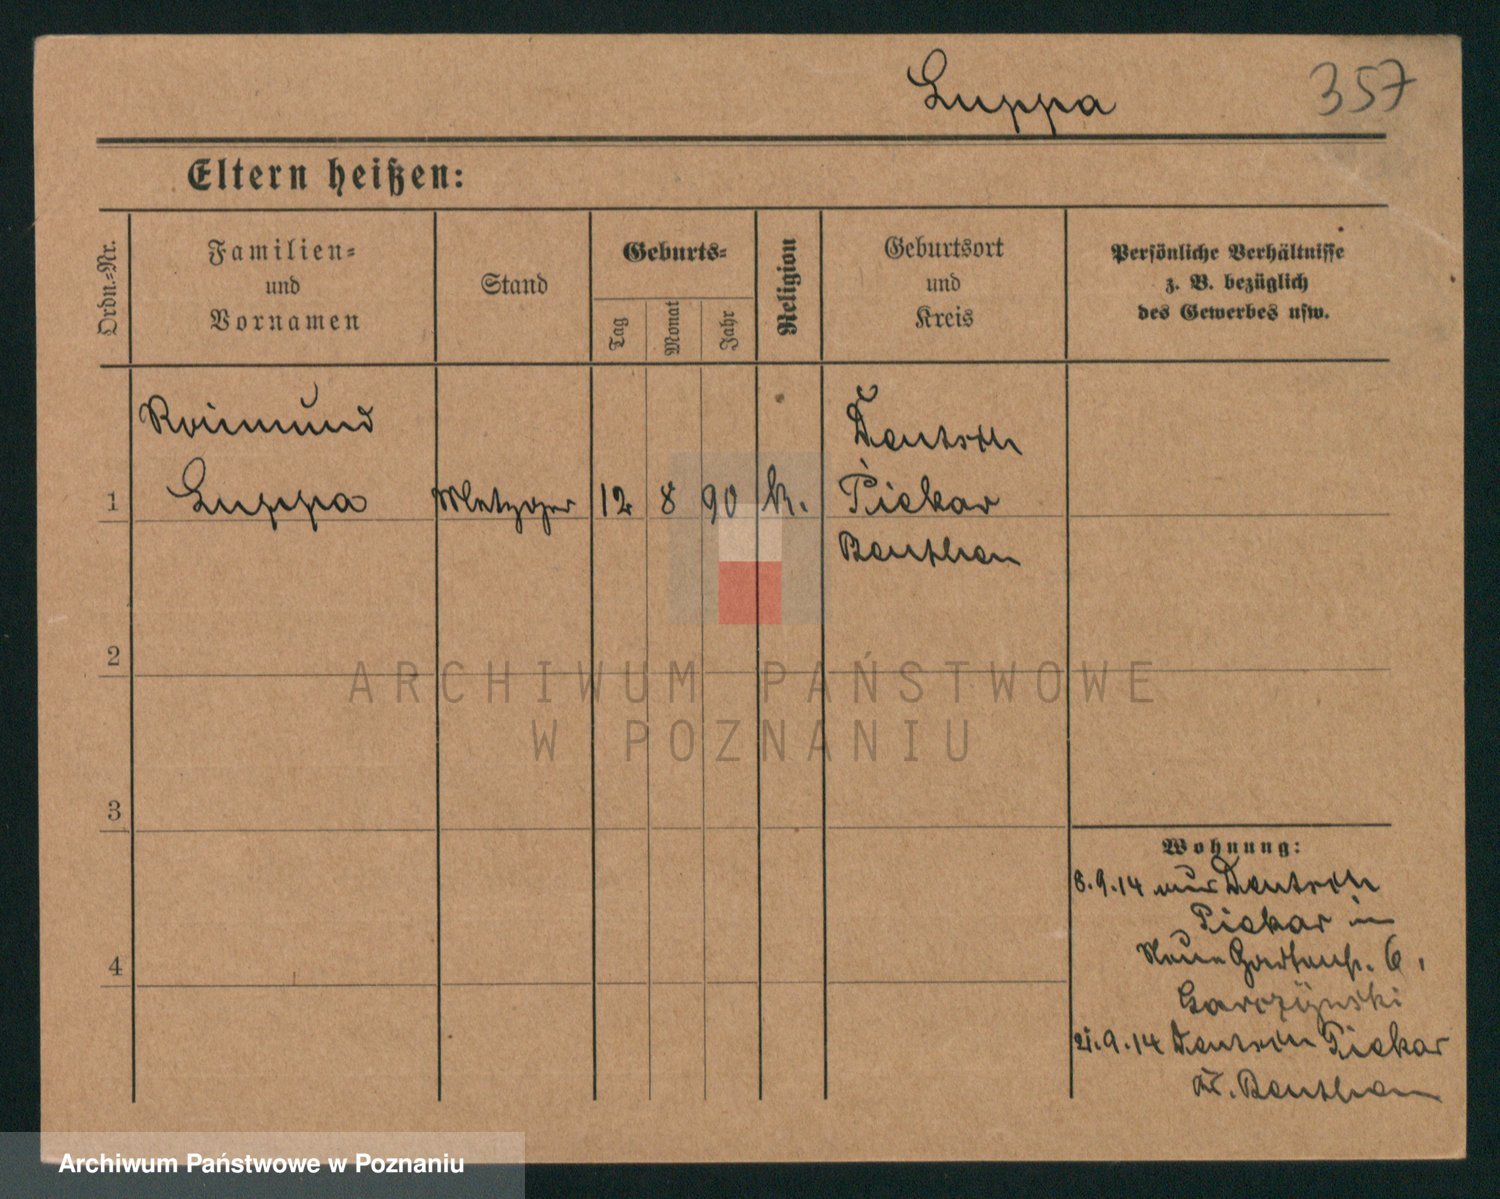 Luppa
357
Eltern heißen:
Ordn.-Nr.
Familien-
und
Vornamen
Stand
Geburts-
Tag
Monat
Jahr
Religion
Geburtsort
und
Kreis
Persönliche Verhältnisse
z. B. bezüglich
des Gewerbes usw.
Raimund
Luppa
1
Metzger
12
8
90
k.
Deutsch
Piekar
Beuthen
2
3
4
Wohnung:
8.9.14 aus Deutsch
Piekar in
Neue Gartenstr. 6,
Garczynski
21.9.14 Deutsch Piekar
Kr. Beuthen
ARCHIWUM PAŃSTWOWE
W POZNANIU
Archiwum Państwowe w Poznaniu